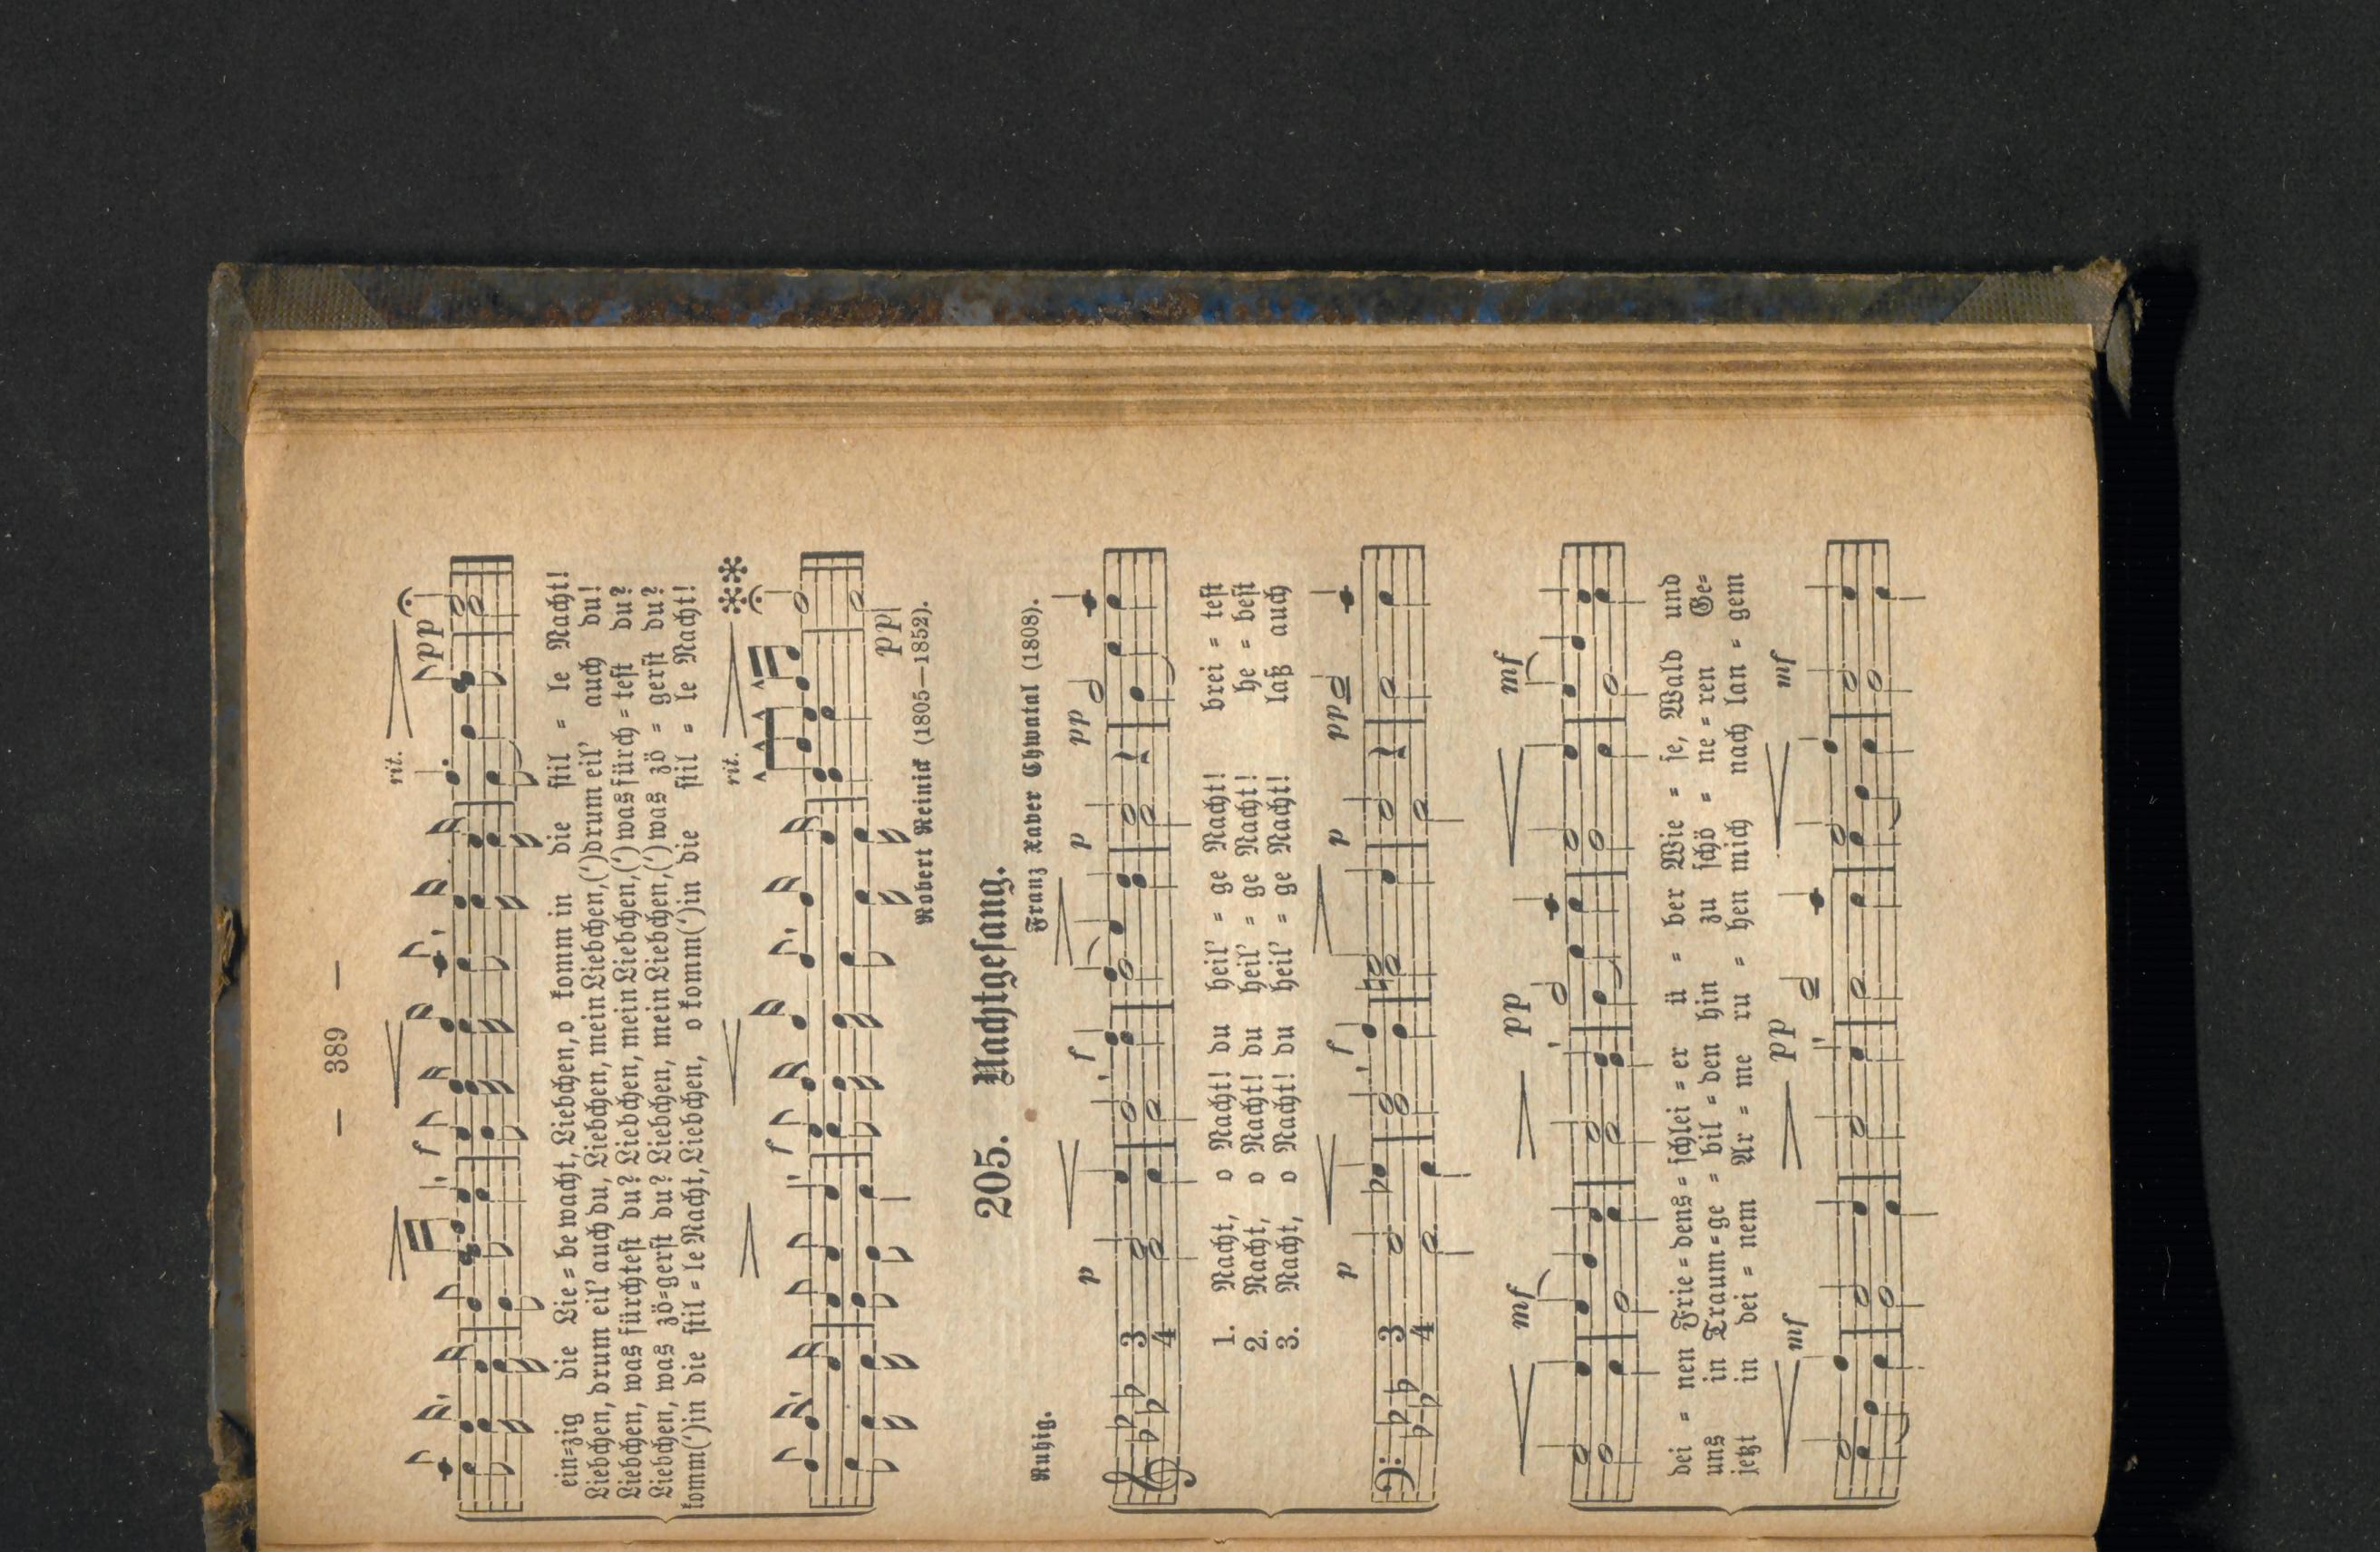 — 389 —
rit.
f
ppp
ein=zig die Lie = be wacht, Liebchen, o komm in die stil = le Nacht!
Liebchen, drum eil' auch du, Liebchen, mein Liebchen,(')drum eil' auch du!
Liebchen, was fürchtest du? Liebchen, mein Liebchen,(')was fürch = test du?
Liebchen, was zö=gerst du? Liebchen, mein Liebchen,(')was zö = gerst du?
komm(')in die stil = le Nacht, Liebchen, o komm(')in die stil = le Nacht!
rit.
f
ppp
Robert Reinick (1805—1852).
205. Nachtgesang.
Ruhig.
Franz Xaver Chwatal (1808).
p f p pp
3
4
1. Nacht, o Nacht! du heil' = ge Nacht! brei = test
2. Nacht, o Nacht! du heil' = ge Nacht! he = best
3. Nacht, o Nacht! du heil' = ge Nacht! laß auch
p f p pp
3
4
mf pp mf
dei = nen Frie = dens = schlei = er ü = ber Wie = se, Wald und
uns in Traum = ge = bil = den hin zu schö = ne = ren Ge=
jetzt in dei = nem Ar = me ru = hen mich nach lan = gem
mf pp mf